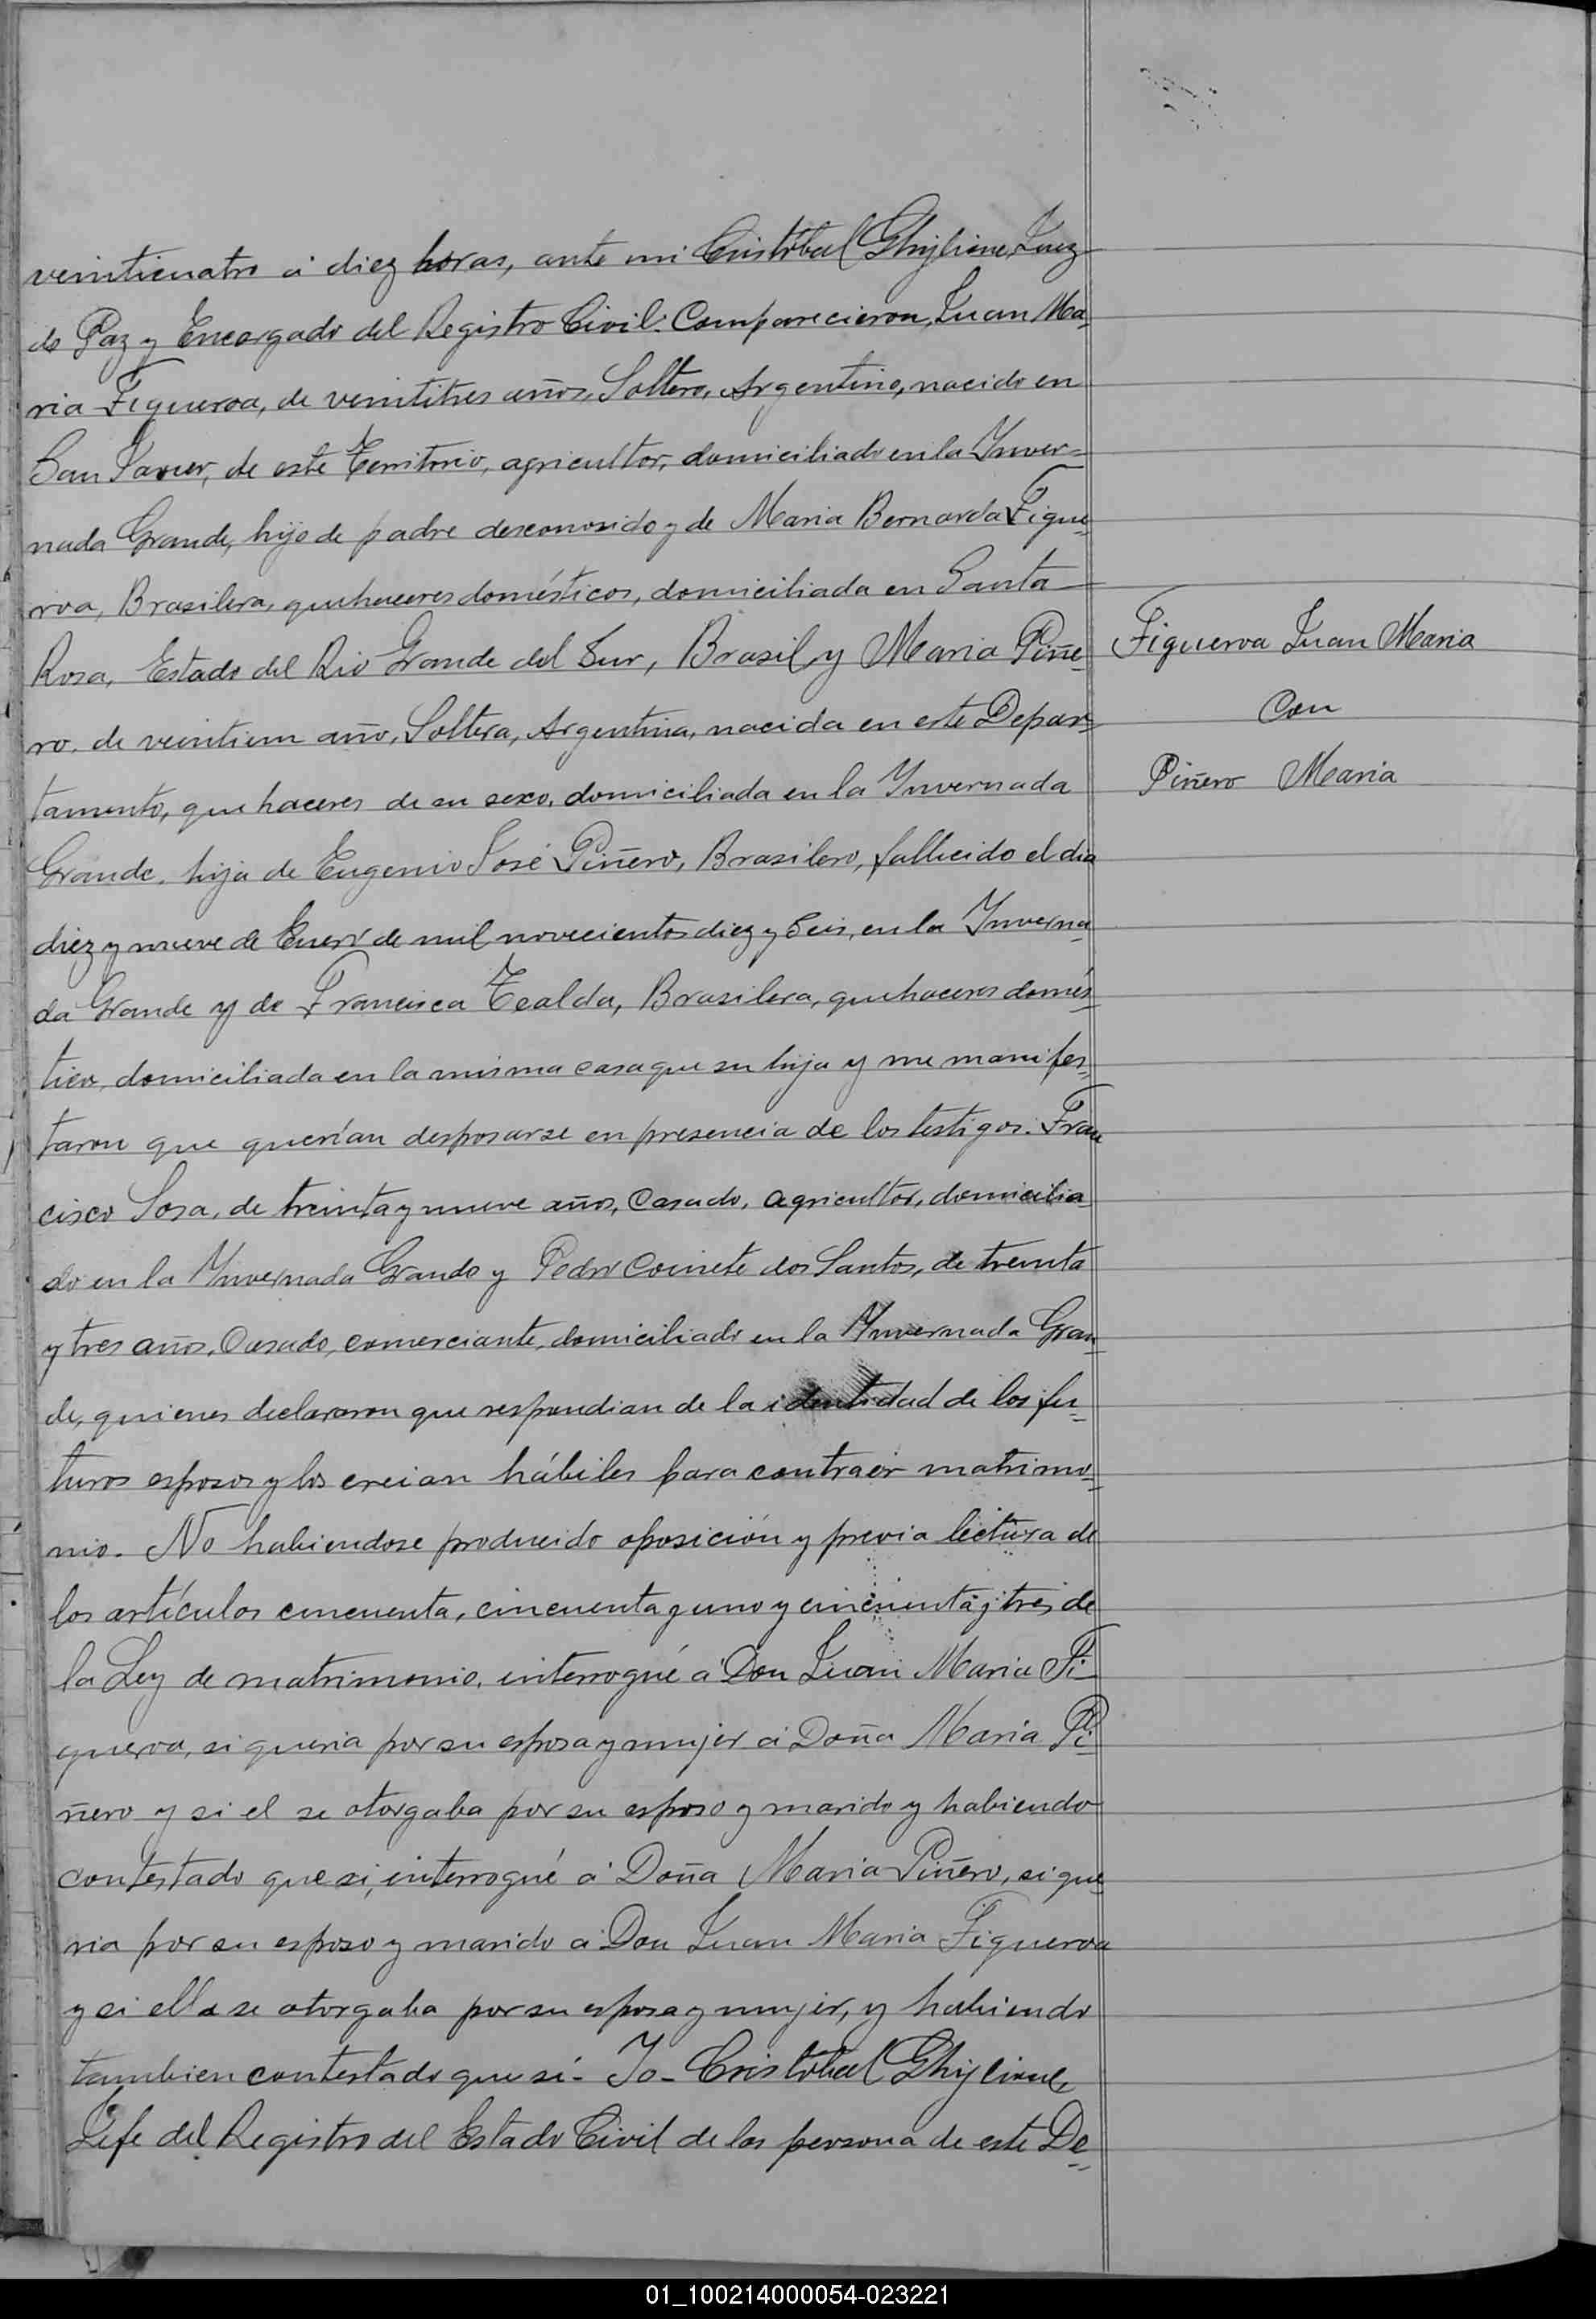 veinticuatro á diez horas, ante mi Cristóbal Ghiglione, Juez
de Paz y Encargado del Registro Civil: Comparecieron, Juan Ma-
ria Figueroa, de veintitres años, Soltero, Argentino, nacido en
San Javier, de este Territorio, agricultor, domiciliado en la Inver=
nada Grande, hijo de padre desconosido y de Maria Bernarda Figue=
roa, Brasilera, quehaceres domésticos, domiciliada en Santa
Rosa, Estado del Rio Grande del Sur, Brasil y Maria Piñe=
ro, de veintiun año, Soltera, Argentina, nacida en este Depar=
tamento, quehaceres de su sexo, domiciliada en la Invernada
Grande, hija de Eugenio José Piñero, Brasilero, fallecido el dia
diez y nueve de Enero de mil novecientos diez y seis, en la Inverna=
da Grande y de Francisca Tealda, Brasilera, quehaceres domés=
ticos, domiciliada en la misma casa que su hija y me manifes=
taron que querían desposarse en presencia de los testigos: Fran
cisco Sosa, de treinta y nueve años, Casado, agricultor, domicilia=
do en la Invernada Grande y Pedro dos Santos, de treinta
y tres años, Casado, comerciante, domiciliado en la Invernada Gran=
de, quienes declararon que respondian de la identidad de los fu=
turos esposos y los creian hábiles para contraer matrimo=
nio. No habiendose producido oposición y previa lectura de
los artículos cincuenta, cincuenta y uno y cincuenta y tres de
la Ley de matrimonio, interrogué á Don Juan Maria Fi=
gueroa, si queria por su esposa y mujer á Doña Maria Pi=
ñero y si el se otorgaba por su esposo y marido y habiendo
contestado que si, interrogué á Doña Maria Piñero, si que=
ria por su esposo y marido á Don Juan Maria Figueroa
y si ella se otorgaba por su esposa y mujer, y habiendo
tambien contestado que sí- Yo- Cristóbal Ghiglione,
Jefe del Registro del Estado Civil de las persona de este De=
Figueroa Juan Maria
Con
Piñero Maria
01_100214000054-023221